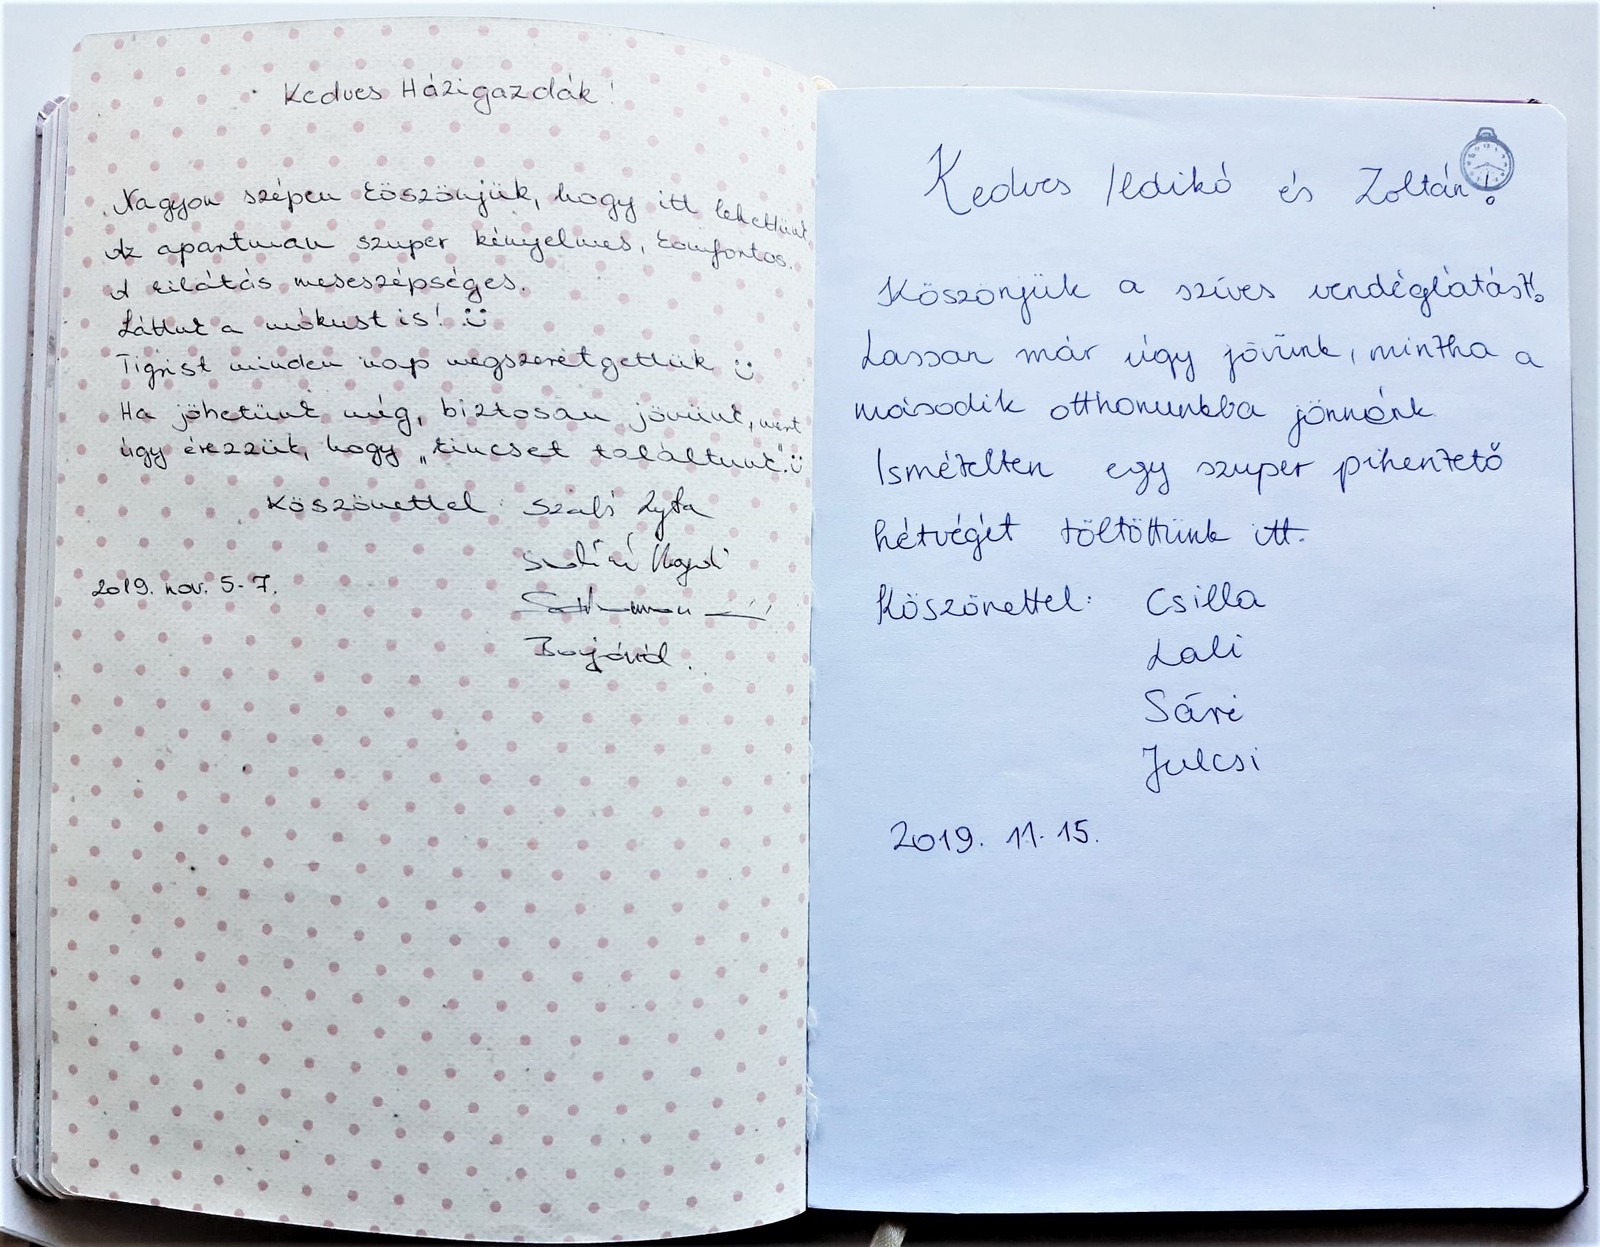 Kedves Házigazdák!
Nagyon szépen köszönjük, hogy itt lehettünk.
Az apartman szuper kényelmes, komfortos.
A kilátás meseszépséges.
Láttuk a mókust is! :)
Tigrist minden nap megszeretgettük :)
Ha jöhetünk még, biztosan jövünk, mert
úgy érezzük, hogy „kincset találtunk". :)
Köszönettel: Szabó
2019. nov. 5-7.
Kedves Ildikó és Zoltán!
Köszönjük a szíves vendéglátást!
Lassan már úgy jövünk, mintha a
második otthonunkba jönnénk
Ismételten egy szuper pihentető
hétvégét töltöttünk itt.
Köszönettel: Csilla
Lali
Sári
Julcsi
2019. 11. 15.